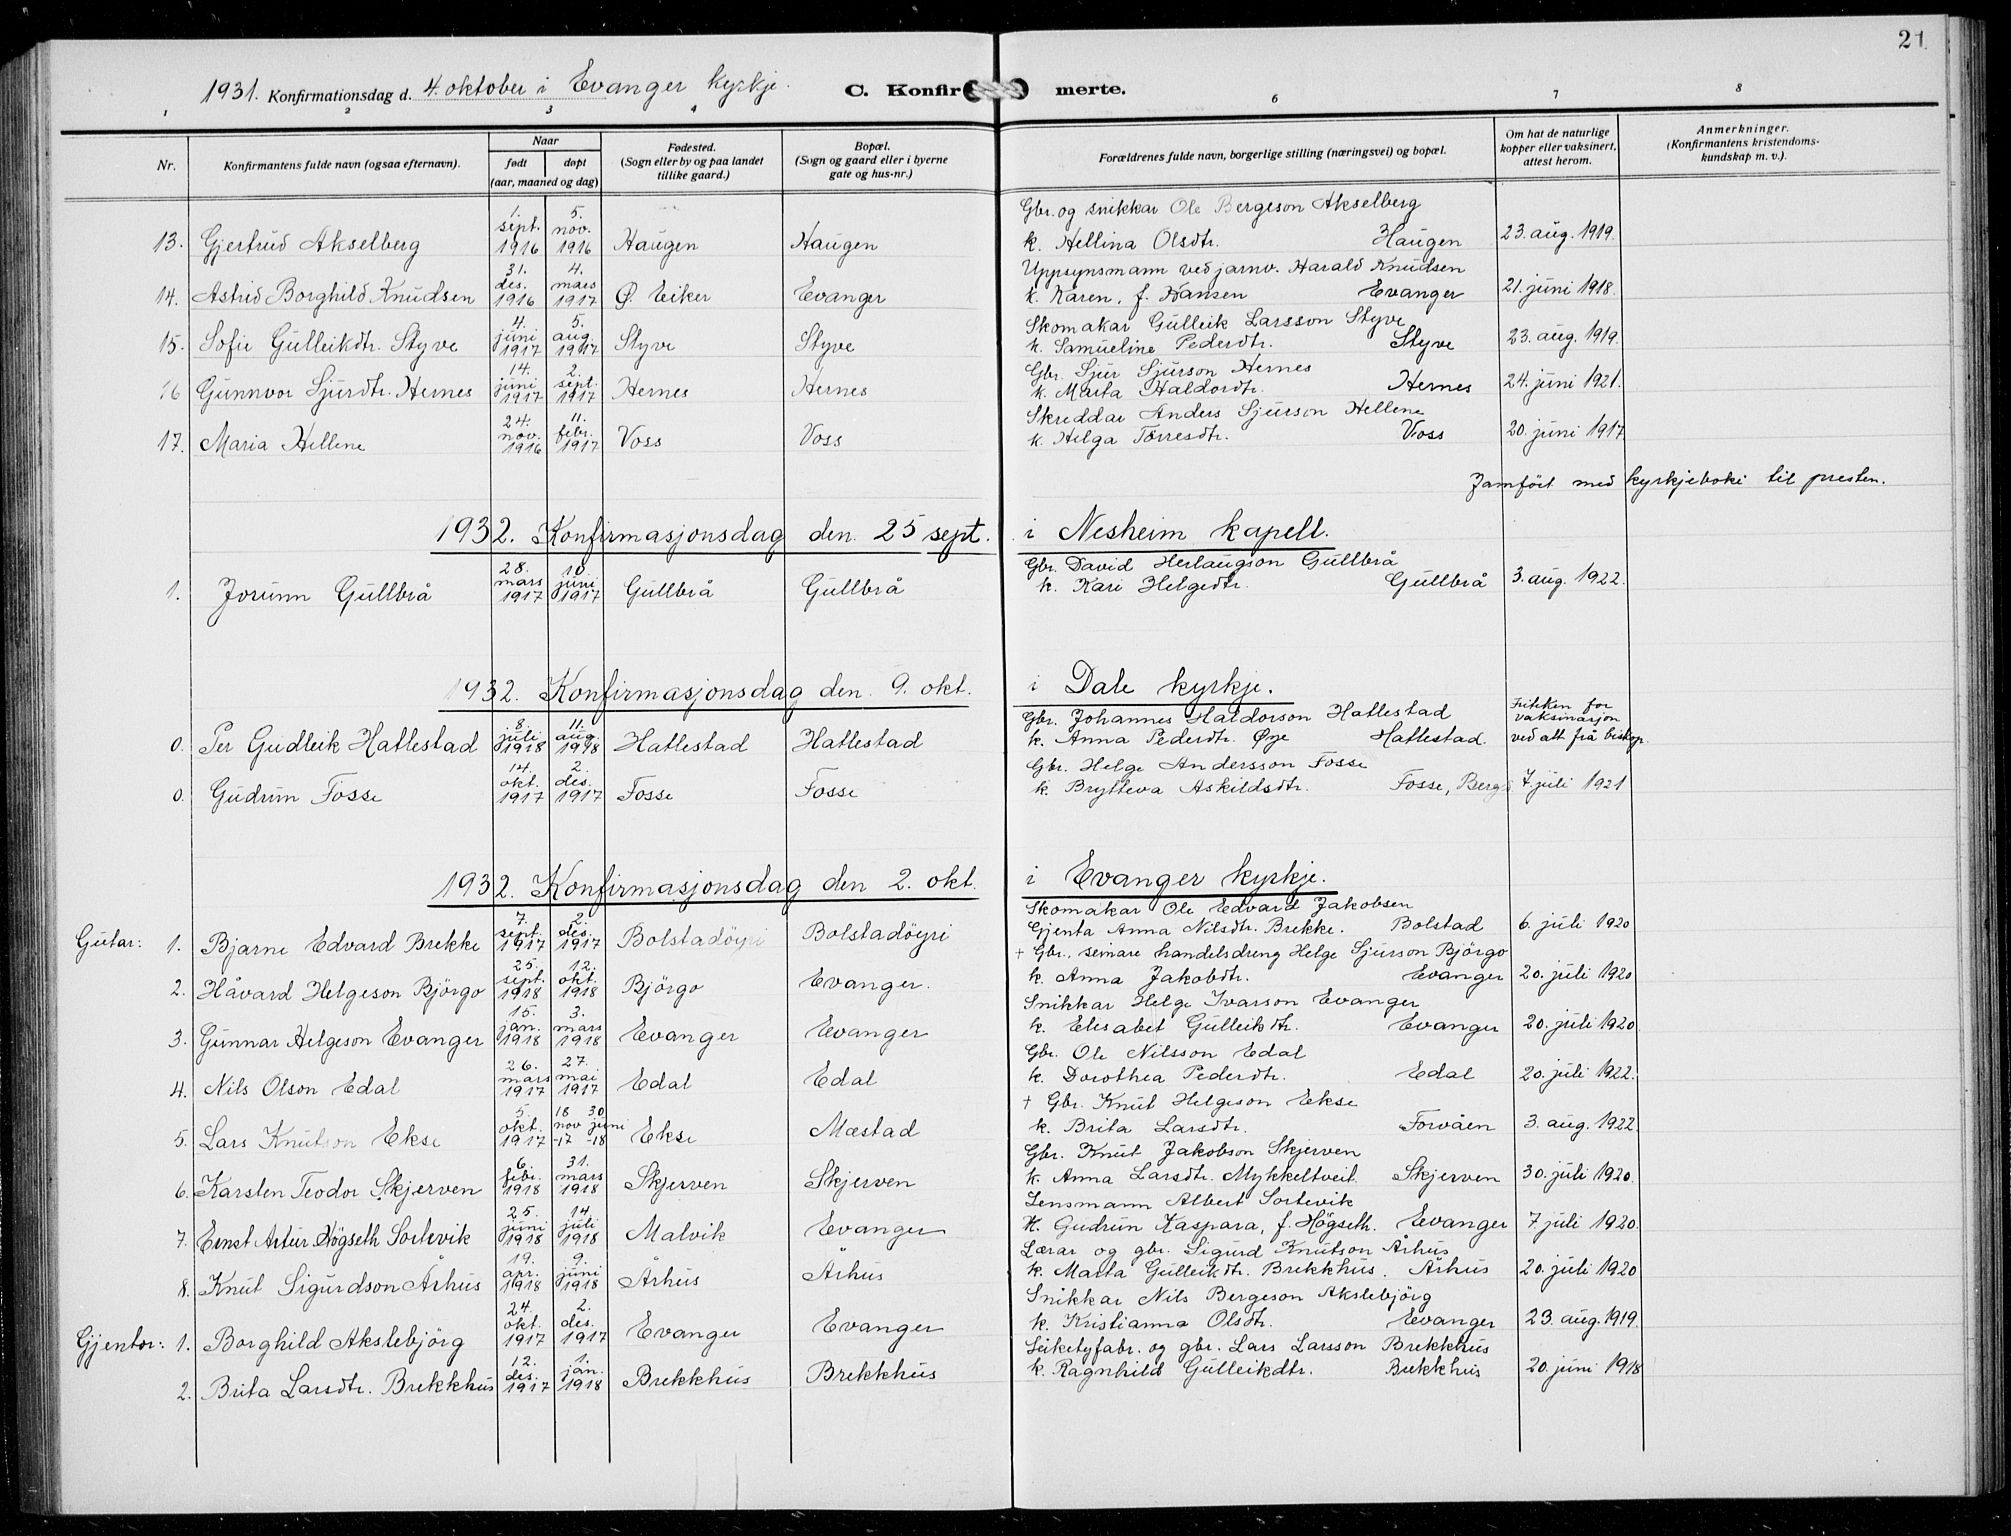 21
1931. Konfirmationsdag d. 4. oktober i Evanger kyrkje. C. Konfirmerte.
1 2 3 4 6 7 8
Nr. Konfirmantens fulde navn (ogsaa efternavn). Naar født døpt (aar, maaned og dag) Fødested. (Sogn eller by og paa landet tillike gaard.) Bopæl. (Sogn og gaard eller i byerne gate og hus-nr.) Forældrenes fulde navn, borgerlige stilling (næringsvei) og bopæl. Om hat de naturlige kopper eller vaksinert, attest herom. Anmerkninger. (Konfirmantens kristendomskundskap m. v.).
Gbr. og snikkar Ole Bergeson Akselberg
13. Gjertrud Akselberg 1. sept. 1916 5. nov. 1916 Haugen Haugen k. Hellina Olsdtr. Haugen 23. aug. 1919.
Uppsynsmann ved jarnv. Harald Knudsen
14. Astrid Borghild Knudsen 31. des. 1916 4. mars 1917 Ø. Eiker Evanger k. Karen, f. Hansen Evanger 21. juni 1918.
Skomakar Gulleik Larsson Styve
15. Sofie Gulleikdtr. Styve 4. juni 1917 5. aug. 1917 Styve Styve k. Samueline Pederdtr. Styve 23. aug. 1919.
Gbr. Sjur Sjurson Hernes
16 Gunnvor Sjurdtr. Hernes 14. juni 1917 2. sept. 1917 Hernes Hernes k. Marta Haldordtr. Hernes 24. juni 1921.
Skreddar Anders Sjurson Hellene
17. Maria Hellene 24. nov. 1916 11. febr. 1917 Voss Voss k. Helga Torresdtr. Voss 20. juni 1917
Jamført med kyrkjeboki til presten.
1932. Konfirmasjonsdag den 25 sept. i Nesheim kapell.
Gbr. David Herlaugson Gullbrå
1. Jorunn Gullbrå 28. mars 1917 10. juni 1917 Gullbrå Gullbrå k. Kari Helgedtr. Gullbrå 3. aug. 1922.
1932. Konfirmasjonsdag den 9. okt. i Dale kyrkje.
Gbr. Johannes Haldorson Hatlestad
0. Per Gudleik Hatlestad 8. juli 1918 11. aug. 1918 Hatlestad Hatlestad k. Anna Pederdtr. Øye Hatlestad. Fritken for vaksinasjon ved att frå biskop.
Gbr. Helge Andersson Fosse
0. Gudrun Fosse 14. okt. 1917 2. des. 1917 Fosse Fosse k. Brytteva Askildsdtr. Fosse, Bergs. 7. juli 1921
1932. Konfirmasjonsdag den 2. okt. i Evanger kyrkje.
Skomakar Ole Edvard Jakobsen
Gutar: 1. Bjarne Edvard Brekke 7. sept. 1917 2. des. 1917 Bolstadöyri Bolstadöyri Gjenta Anna Nilsdtr. Brekke. Bolstad 6. juli 1920
+ Gbr., seinare handelsdreng Helge Sjurson Björgo
2. Håvard Helgeson Björgo 25. sept. 1918 12. okt. 1918 Björgo Evanger. k. Anna Jakobdtr. Evanger 20. juli 1920
Snikkar Helge Ivarson Evanger
3. Gunnar Helgeson Evanger 15. jan. 1918 3. mars 1918 Evanger Evanger k. Elisabet Gulleikdtr. Evanger 20. juli 1920.
Gbr. Ole Nilsson Edal
4. Nils Olson Edal 26. mars 1917 27. mai 1917 Edal Edal k. Dorothea Pederdtr. Edal 20. juli 1922.
+ Gbr. Knut Helgeson Ekse
5. Lars Knutson Ekse 5. okt. 1917 18 nov -17 30 juni -18 Ekse Mæstad k. Brita Larsdtr. Forvåen 3. aug. 1922
Gbr. Knut Jakobson Skjerven
6. Karsten Teodor Skjerven 6. febr. 1918 31. mars 1918 Skjerven Skjerven k. Anna Larsdtr. Mykkeltveit. Skjerven 30. juli 1920.
Lensmann Albert Sortevik
7. Ernst Artur Högseth Sortevik 25. juni 1918 14. juli 1918 Malvik Evanger K. Gudrun Kaspara, f. Högseth. Evanger 7. juli 1920.
Lærar og gbr. Sigurd Knutson Århus
8. Knut Sigurdson Århus 19. apr. 1918 9. juni 1918 Århus Århus k. Marta Gulleikdtr. Brekkhus. Århus 20. juli 1920
Snikkar Nils Bergeson Akslebjörg
Gjentor: 1. Borghild Akslebjörg 24. okt. 1917 2. des. 1917 Evanger Evanger k. Kristianna Olsdtr. Evanger 23. aug. 1919.
Leiketyfabr. og gbr. Lars Larsson Brekkhus
2. Brita Larsdtr. Brekkhus 12. des. 1917 1. jan. 1918 Brekkhus Brekkhus k. Ragnhild Gulleikdtr. Brekkhus 20. juni 1918